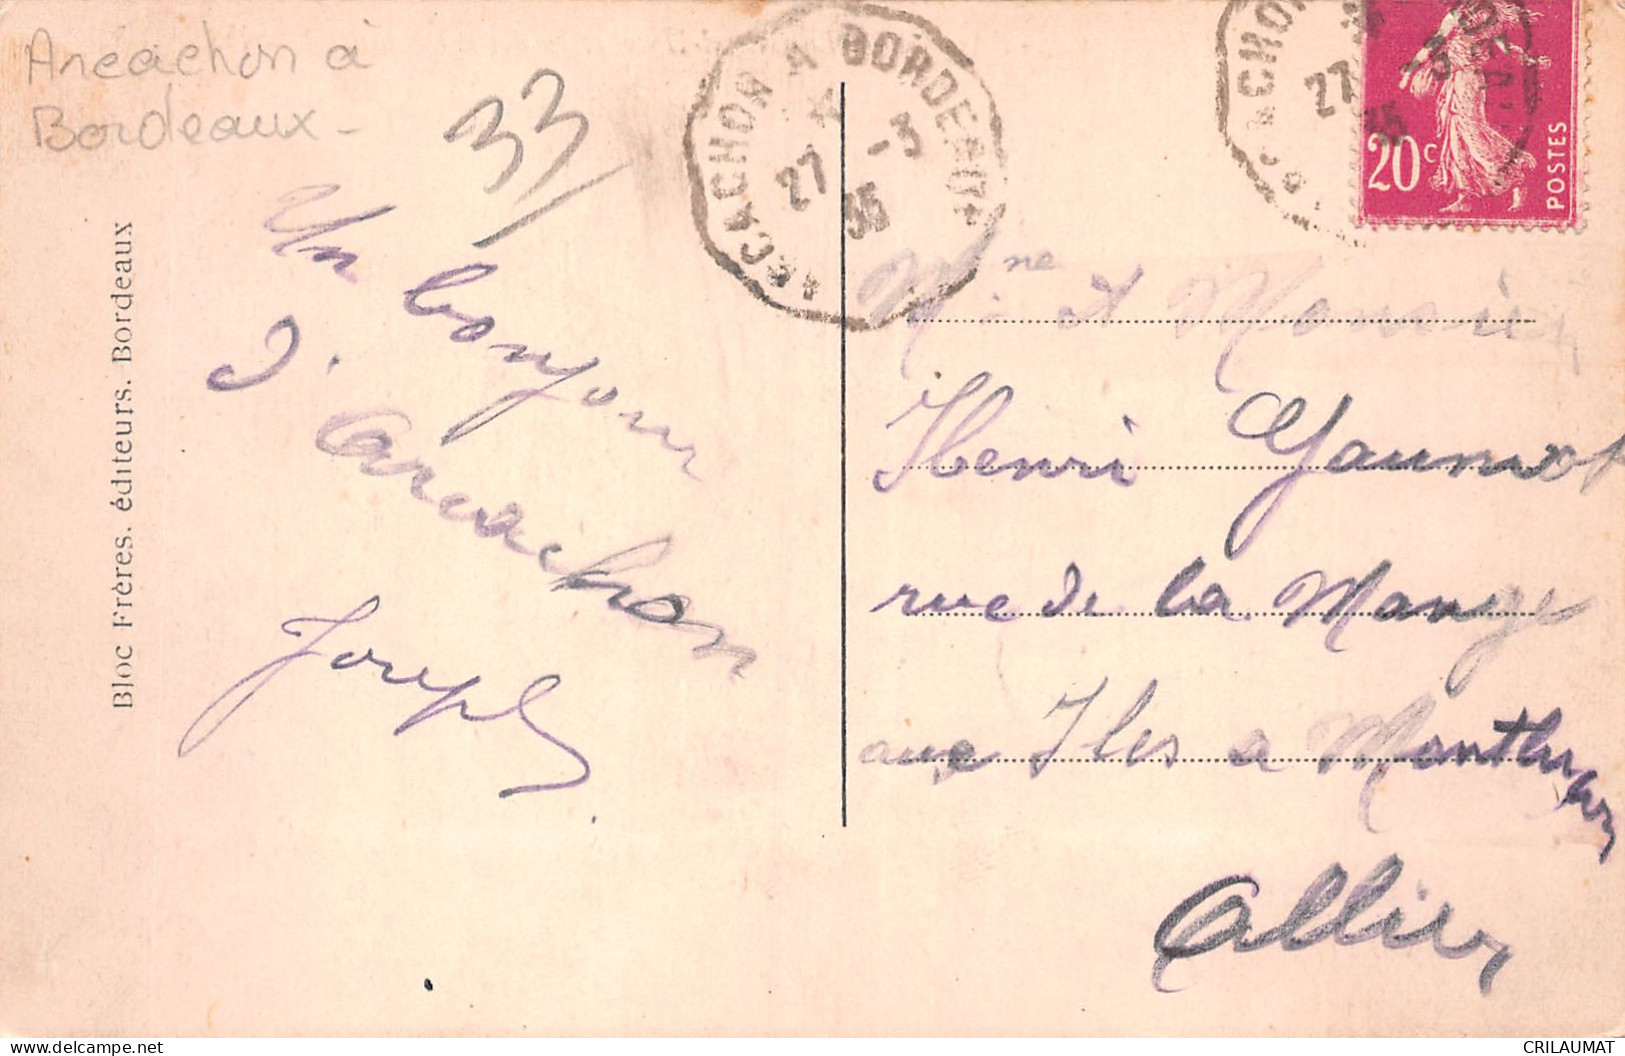 Arcachon à
Bordeaux -
33
ARCACHON A BORDEAUX
27 -3
35
27 -3
35
20c
POSTES
Un bonjour
d'Arcachon
Joseph
Bloc Frères. éditeurs. Bordeaux
Mme et Monsieur
Henri
rue de la
aux Iles a Montluçon
Allier
CRILAUMAT